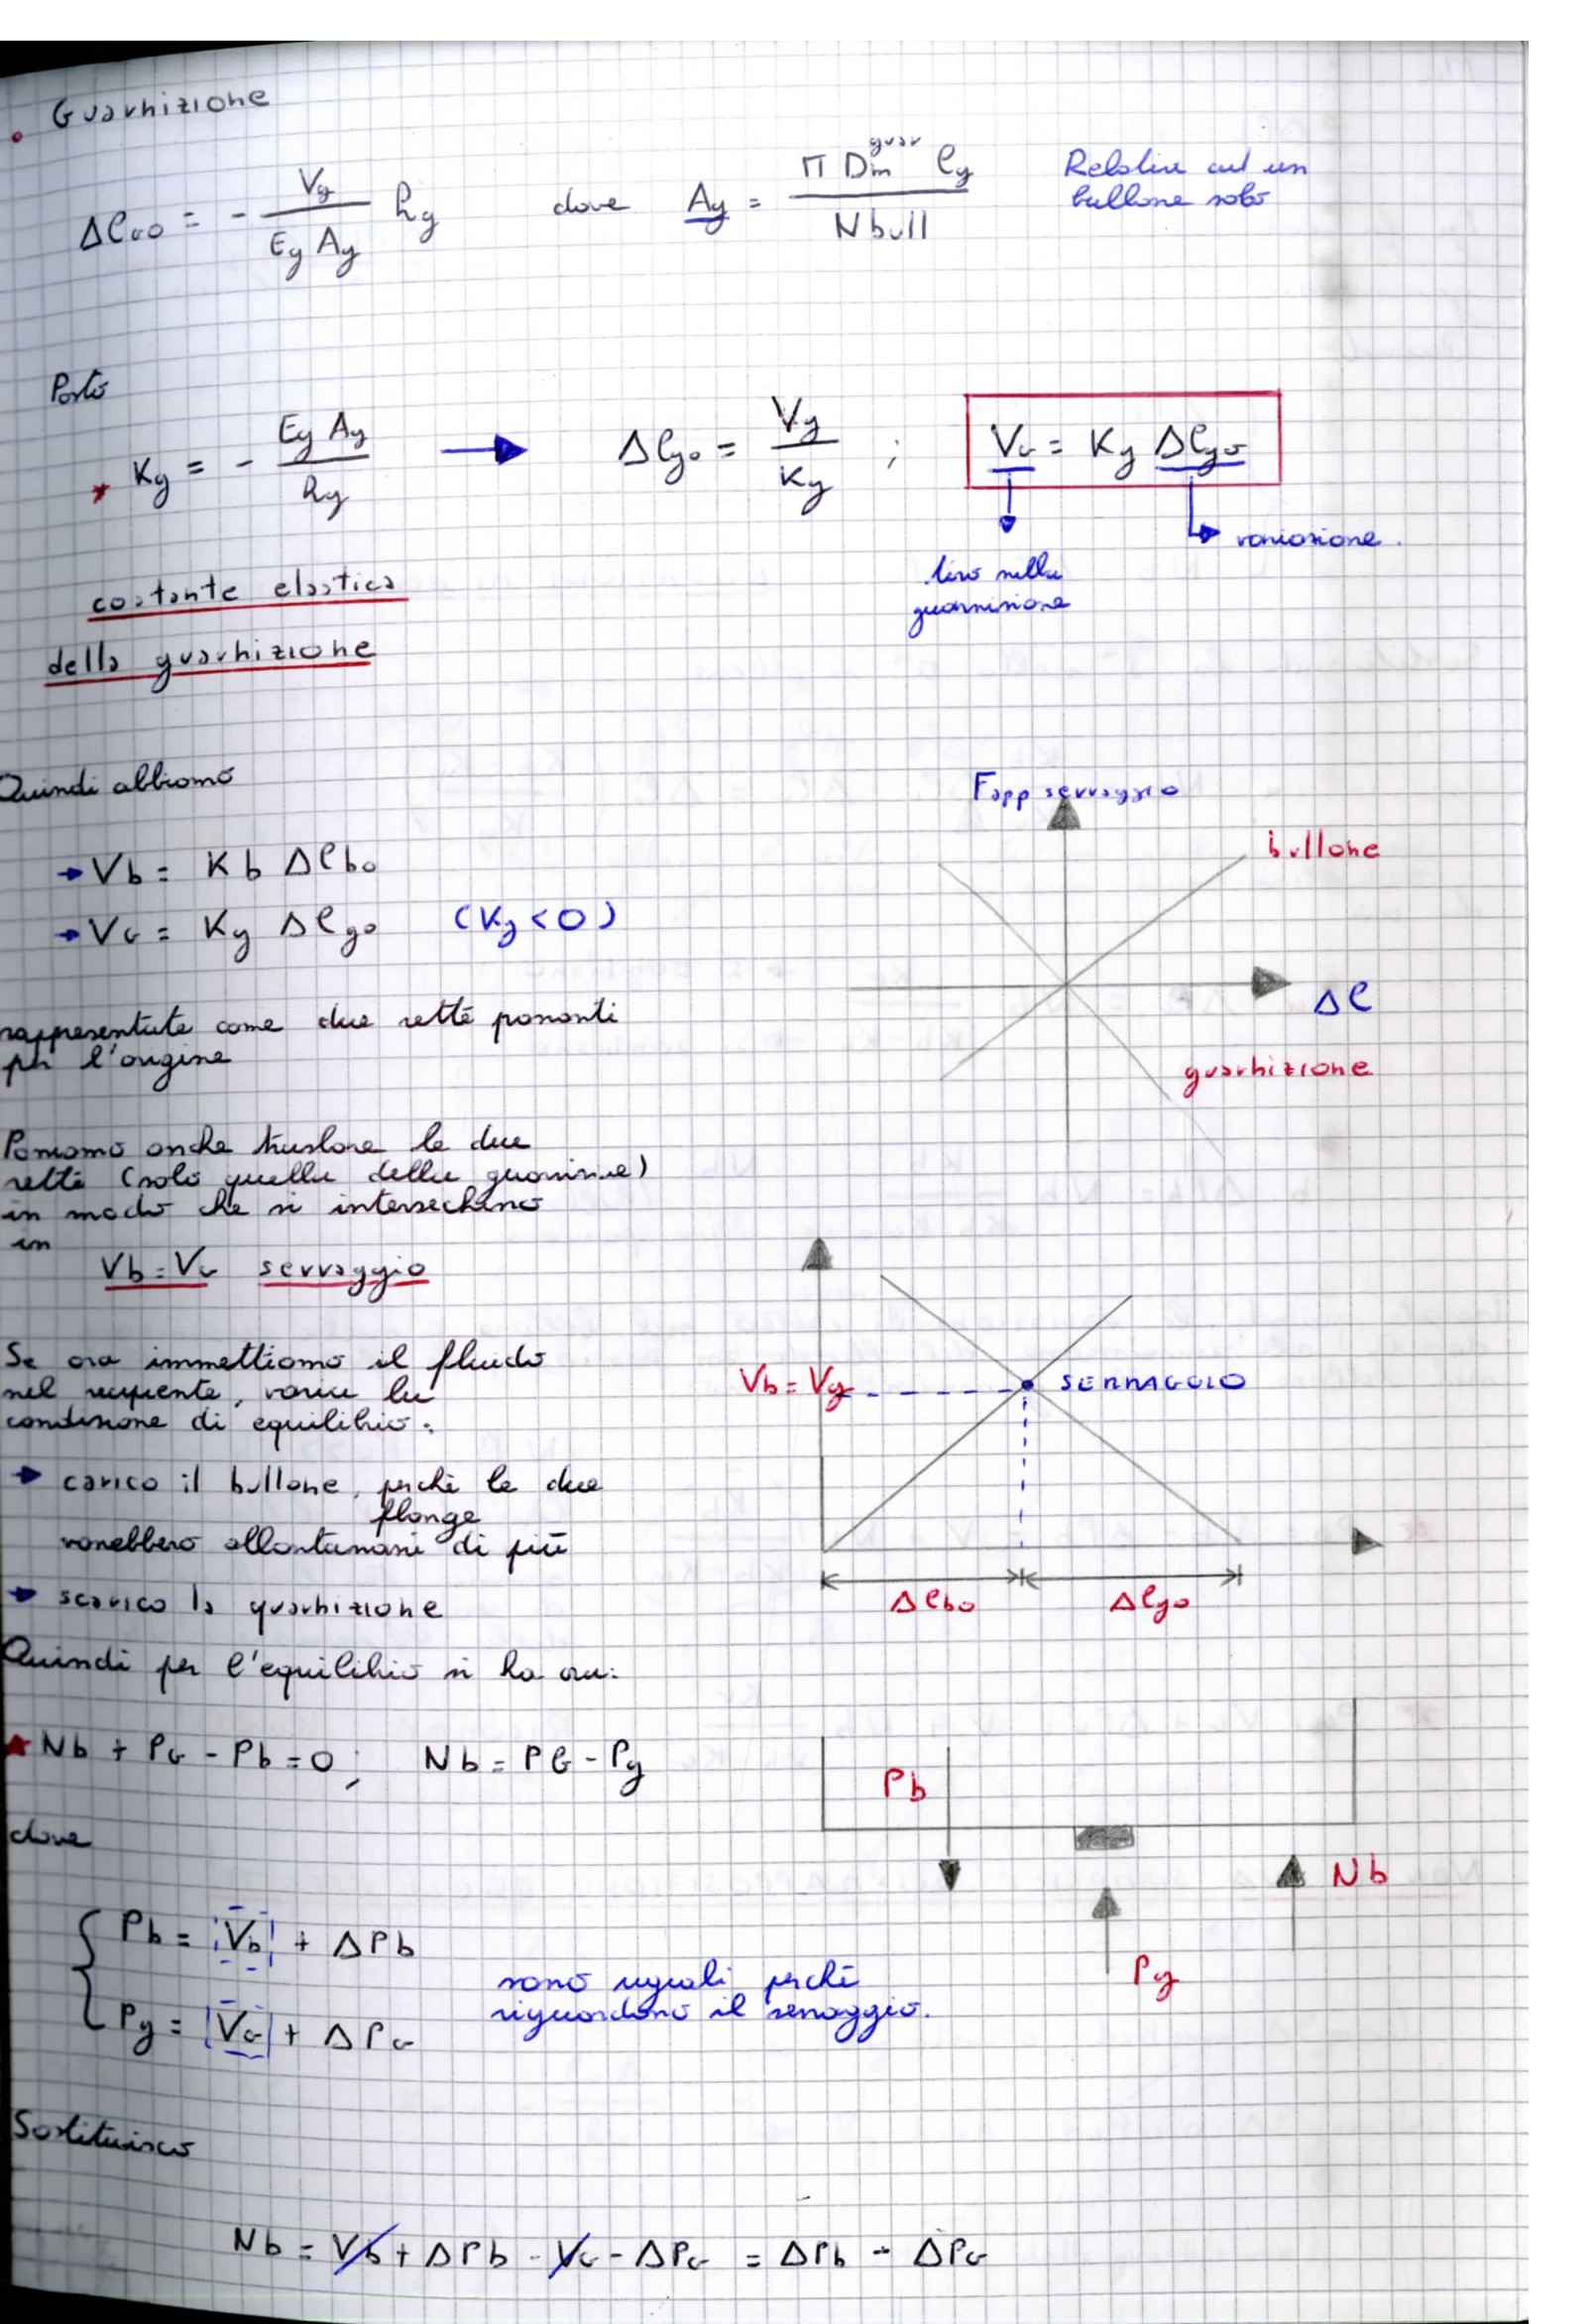 • Guarnizione
ΔℓGO = - Vg / (Eg Ag) hg dove Ag = π Dm^guar ℓg / N bull Relativa ad un
bullone solo
Posto
* Kg = - Eg Ag / hg → Δℓgo = Vg / Kg ; VG = Kg Δℓgo
variazione.
costante elastica
tiro nella
guarnizione
della guarnizione
Quindi abbiamo
→ Vb = Kb Δℓbo
→ VG = Kg Δℓgo (Kg < 0)
rappresentate come due rette passanti
per l'origine
F app serraggio
bullone
Δℓ
guarnizione
Possiamo anche traslare le due
rette (solo quella della guarnizione)
in modo che si intersechino
in
Vb = VG serraggio
Se ora immettiamo il fluido
nel recipiente, varia la
condizione di equilibrio:
→ carico il bullone, perché le due
flange
vorrebbero allontanarsi di più
→ scarico la guarnizione
Vb = Vg
SERRAGGIO
Δℓbo Δℓgo
Quindi per l'equilibrio si ha ora:
* Nb + PG - Pb = 0 ; Nb = PG - Pg
dove
{ Pb = Vb + ΔPb
Pg = VG + ΔPG
sono uguali perché
riguardano il serraggio.
Pb
Nb
Pg
Sostituisco
Nb = Vb + ΔPb - VG - ΔPG = ΔPb - ΔPG